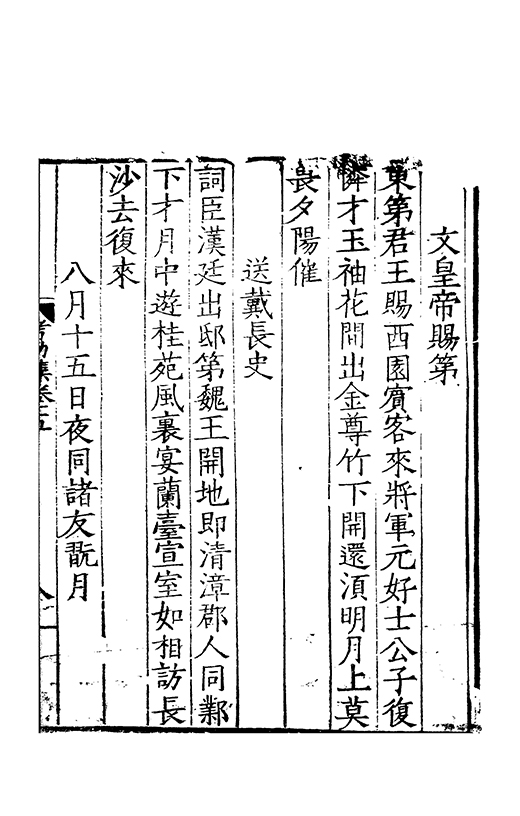 文皇帝賜第
東第君王賜西園賓客來將軍元好士公子復
憐才玉袖花間出金尊竹下開還湏明月上莫
畏夕陽催
送戴長史
詞臣漢廷出邸第魏王開地即清漳郡人同鄴
下才月中遊桂苑風裏宴蘭臺宣室如相訪長
沙去復來
八月十五日夜同諸友翫月